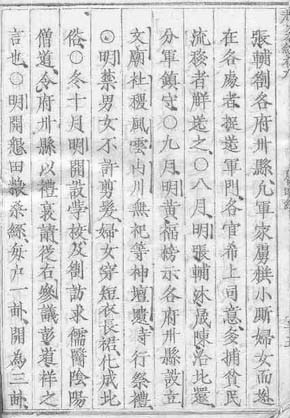 張輔劄各府州縣允軍家男供小斯婦女而逃
在各處者捉送軍門各官希上司意多捕貧民
流移者解送之○八月明張輔沐晟陳洽北還
分軍鎮守○九月明黄福榜示各府州縣設立
文廟社稷風雲山川無祀等神壇壝寺行祭禮
○明禁男女不許剪髮婦女穿短衣長裙化成北
俗○冬十月明開設學校及劄訪求儒醫陰陽
僧道令府州縣以禮裒請從右參議彭道祥之
言也○明開懇田數桑絲每户一畝開為三畝